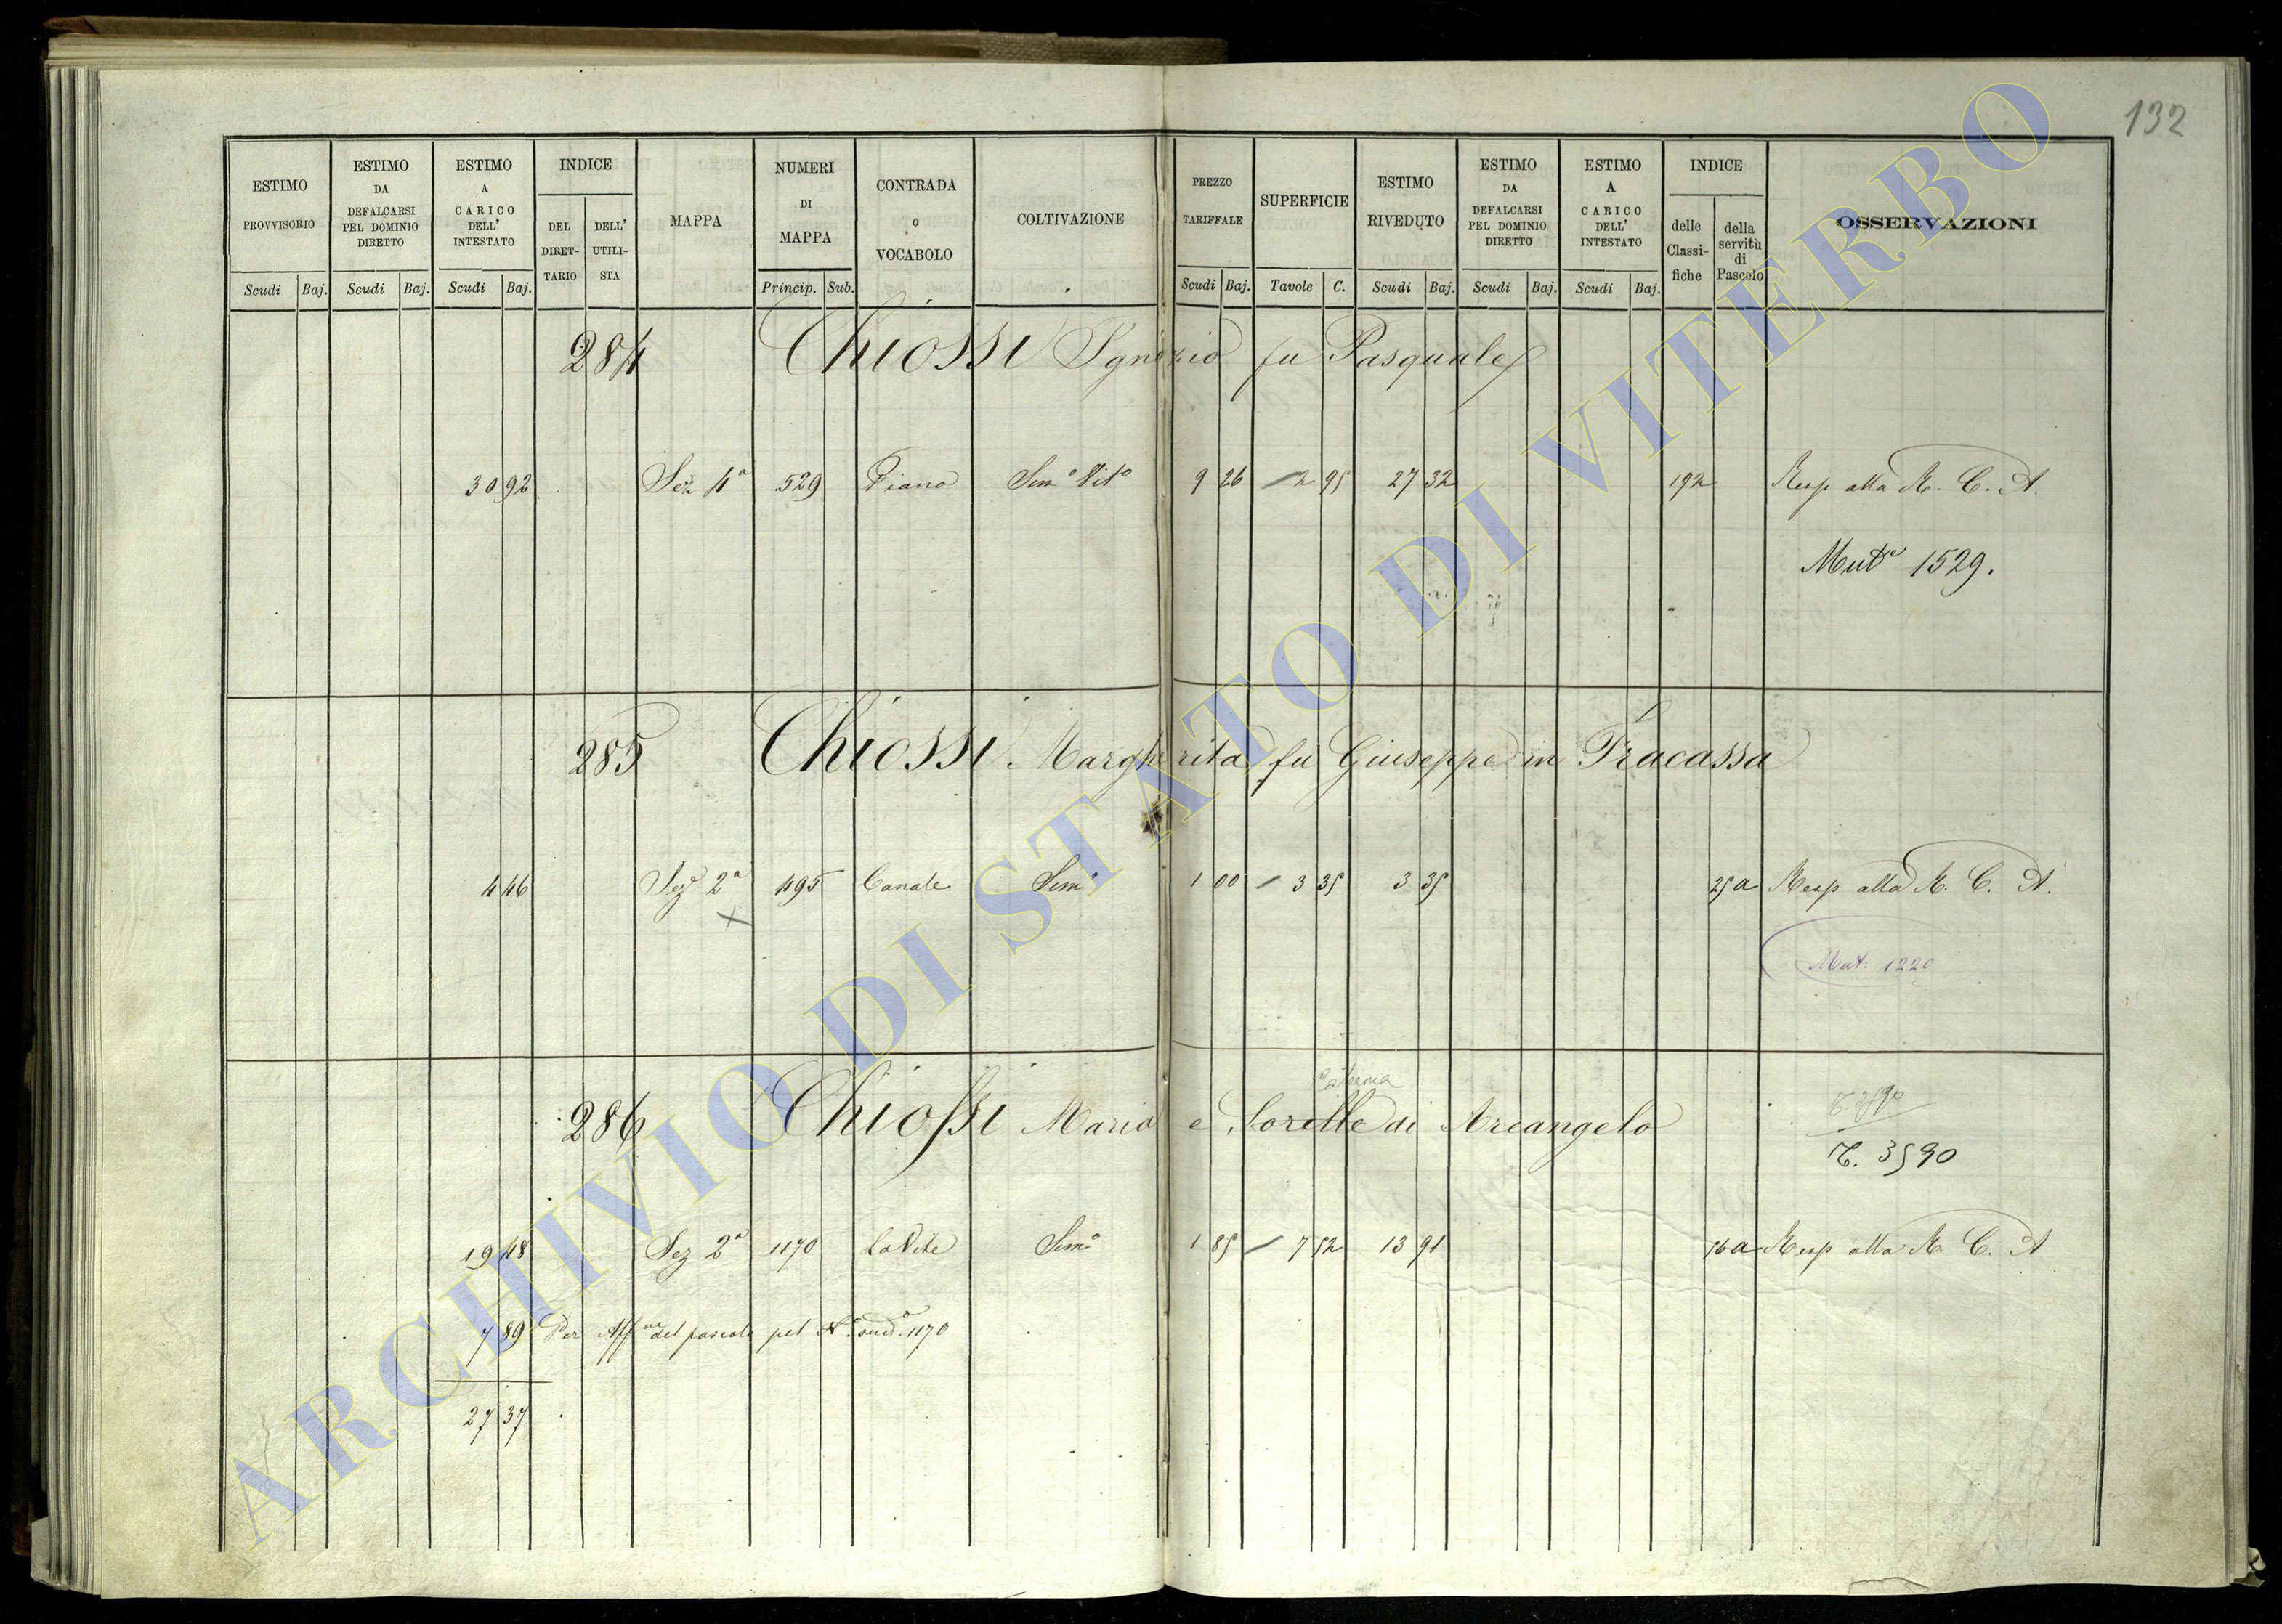 132
ESTIMO PROVVISORIO
ESTIMO DA DEFALCARSI PEL DOMINIO DIRETTO
ESTIMO A CARICO DELL' INTESTATO
INDICE
DEL DIRET-TARIO
DELL' UTILI-STA
MAPPA
NUMERI DI MAPPA
CONTRADA o VOCABOLO
COLTIVAZIONE
PREZZO TARIFFALE
SUPERFICIE
ESTIMO RIVEDUTO
ESTIMO DA DEFALCARSI PEL DOMINIO DIRETTO
ESTIMO A CARICO DELL' INTESTATO
INDICE
delle Classi-fiche
della servitù di Pascolo
OSSERVAZIONI
Scudi Baj. Scudi Baj. Scudi Baj. Princip. Sub. Scudi Baj. Tavole C. Scudi Baj. Scudi Baj. Scudi Baj.
284 Chiossi Ignazio fu Pasquale
30 92 Sez 4ª 529 Piano Sem° Vit° 9 26 2 95 27 32 192 Resp alla R. C. A.
Mut.e 1529.
285 Chiossi Margherita fu Giuseppe in Fracassa
4 46 Sez 2ª 495 Canale Sem° 1 00 3 35 3 35 25 a Resp alla R. C. A.
Mut: 1220
286 Chiossi Maria e Sorelle di Arcangelo
T. 3590
T. 3590
19 48 Sez 2ª 1170 La Vite Sem° 1 85 7 52 13 91 56 a Resp alla R. C. A
7 89 Per Aff.ne del pascolo pel N° sud.° 1170
27 37
ARCHIVIO DI STATO DI VITERBO